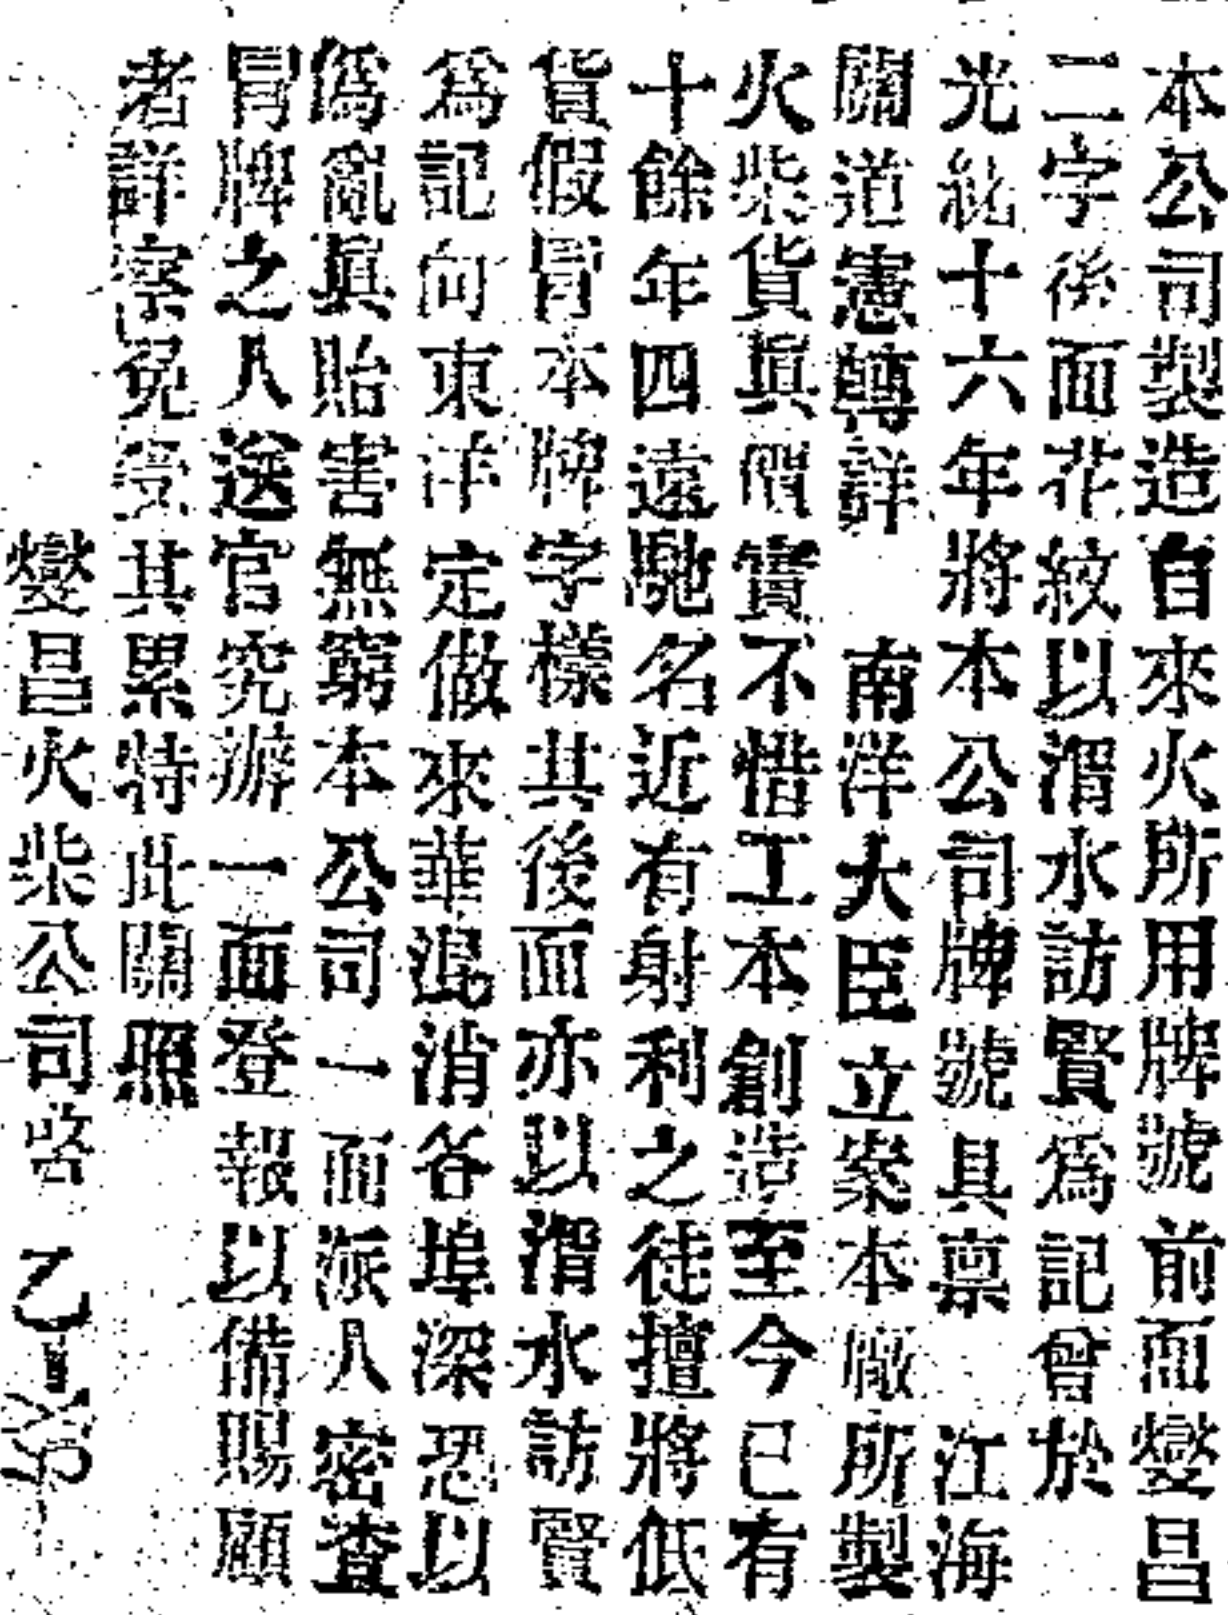 本公司製造自來火所用牌號前面燮昌
二字後面花紋以渭水訪賢爲記曾於
光緒十六年將本公司牌號具禀 江海
關道憲轉詳 南洋大臣立案本廠所製
火柴貨眞價實不惜工本創造至今已有
十餘年四遠馳名近有射利之徒擅將低
貨假冐本牌字樣其後面亦以渭水訪賢
爲記向東洋定做來華混淆各埠深恐以
僞亂眞貽害無窮本公司一面派人密查
冐牌之人送官究辦一面登報以備賜顧
者詳察免受其累特此關照
燮昌火柴公司啓